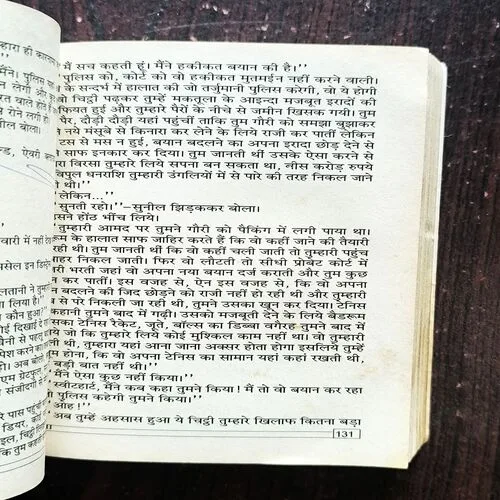 मैं सच कहती हूं। मैंने हकीकत बयान की है।''
पुलिस को, कोर्ट को वो हकीकत मुतमईन नहीं करने वाली।
के सन्दर्भ में हालात की जो तर्जुमानी पुलिस करेगी, वो ये होगी
वो चिट्ठी पढ़कर तुम्हें मकतूला के आइन्दा मजबूत इरादों की
फियत हुई और तुम्हारे पैरों के नीचे से जमीन खिसक गयी। तुम
पैर, दौड़ी दौड़ी यहां पहुंचीं ताकि तुम गौरी को समझा बुझाकर
नये मंसूबे से किनारा कर लेने के लिये राजी कर पातीं लेकिन
टस से मस न हुई, बयान बदलने का अपना इरादा छोड़ देने से
साफ इनकार कर दिया। तुम जानती थीं उसके ऐसा करने से
रा बिरसा तुम्हारे लिये सपना बन सकता था, तीस करोड़ रुपये
विपुल धनराशि तुम्हारी उंगलियों में से पारे की तरह निकल जाने
थी।''
''लेकिन...''
सुनती रहो।''—सुनील झिड़ककर बोला।
सने होंठ भींच लिये।
तुम्हारी आमद पर तुमने गौरी को पैकिंग में लगी पाया था।
रूम के हालात साफ जाहिर करते हैं कि वो कहीं जाने की तैयारी
रही थी। तुम जानती थीं कि वो कहीं चली जाती तो तुम्हारी पहुंच
बाहर निकल जाती। फिर वो लौटती तो सीधी प्रोबेट कोर्ट में
री भरती जहां वो अपना नया बयान दर्ज कराती और तुम कुछ
कर पातीं। इस वजह से, ऐन इस वजह से, कि वो अपना
न बदलने की जिद छोड़ने को राजी नहीं हो रही थी और तुम्हारी
से परे निकली जा रही थी, तुमने उसका खून कर दिया। टेनिस
कहानी तुमने बाद में गढ़ी। उसको मजबूती देने के लिये बैडरूम
सका टेनिस रैकेट, जूते, बॉल्स का डिब्बा वगैरह तुमने बाद में
ये जो कि तुम्हारे लिये कोई मुश्किल काम नहीं था। वो तुम्हारी
थी, तुम्हारा यहां आना जाना अक्सर होता होगा इसलिये तुम्हें
म होना, कि वो अपना टेनिस का सामान यहां कहां रखती थी,
बड़ी बात नहीं थी।''
''मैंने ऐसा कुछ नहीं किया।''
स्वीटहार्ट, मैंने कब कहा तुमने किया! मैं तो वो बयान कर रहा
पुलिस कहेगी तुमने किया।''
ओह!''
अब तुम्हें अहसास हुआ ये चिट्ठी तुम्हारे खिलाफ कितना बड़ा
131